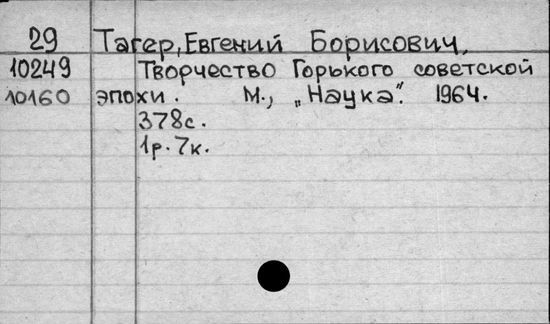 29 Тагер, Евгений Борисович,
10249 Творчество Горького советской
10160 эпохи. М., „Наука". 1964.
378с.
1р. 7к.